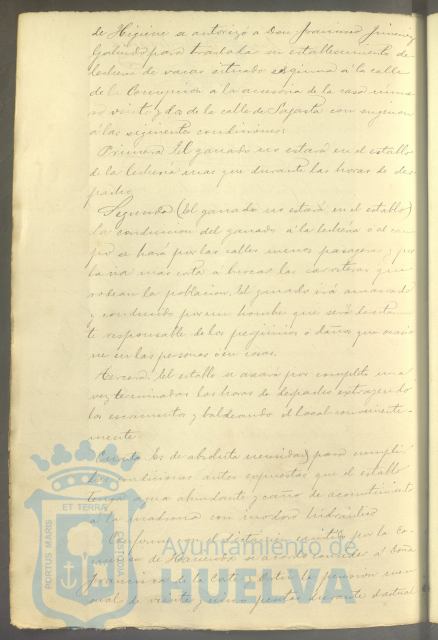 de Higiene se autorizó a Don Francisco Jimenez
Galindo para trasladar su establecimiento de
lecheria de vacas situado esquina á la calle
de la Concepcion á la accesoria de la casa nume-
ro veinte y dos de la calle de Sagasta con sugecion
á las siguientes condiciones:
Primera El ganado no estará en el establo
de la lecheria mas que durante las horas de des-
pacho.
Segunda (El ganado no estará en el establo)
la conduccion del ganado á la lecheria ó al cam-
po se hará por las calles menos pasageras y por
la via mas corta a buscar las carreteras que
rodean la poblacion. El ganado irá amarrado
y conducido por un hombre que será
responsable de los perjuicios ó daños que ocasio
ne en las personas ó en cosas.
Tercera. El establo se aseará por completo una
vez terminadas las horas de despacho extrayendo
los escrementos y baldeando el local conveniente-
mente
Cuarta Es de absoluta necesidad para cumplir
las condiciones antes expuestas que el establo
tenga agua abundante y caño de acometimiento
á la madrona con inodoro hidráulico
Conforme al dictamen emitido por la Co-
mision de Hacienda se acordó conceder á Doña
Francisca de la Corte la pension men-
sual de veinte y cinco pesetas durante el actual
PORTUS MARIS ET TERRAE CUSTODIA
Ayuntamiento de
HUELVA